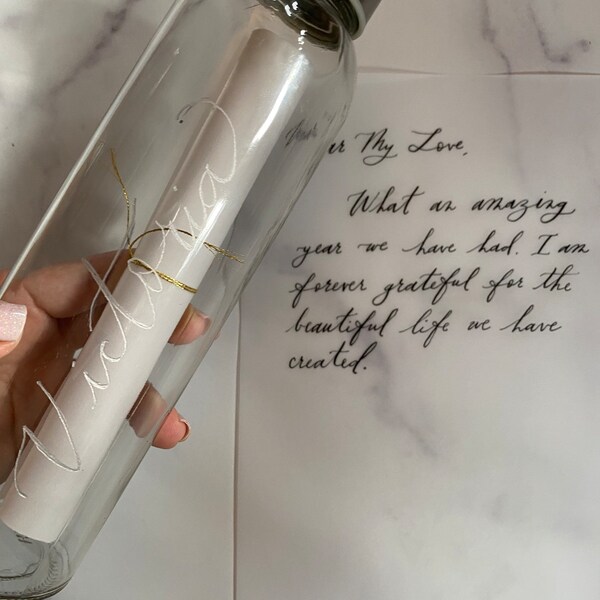 Dear My Love,
What an amazing
year we have had. I am
forever grateful for the
beautiful life we have
created.